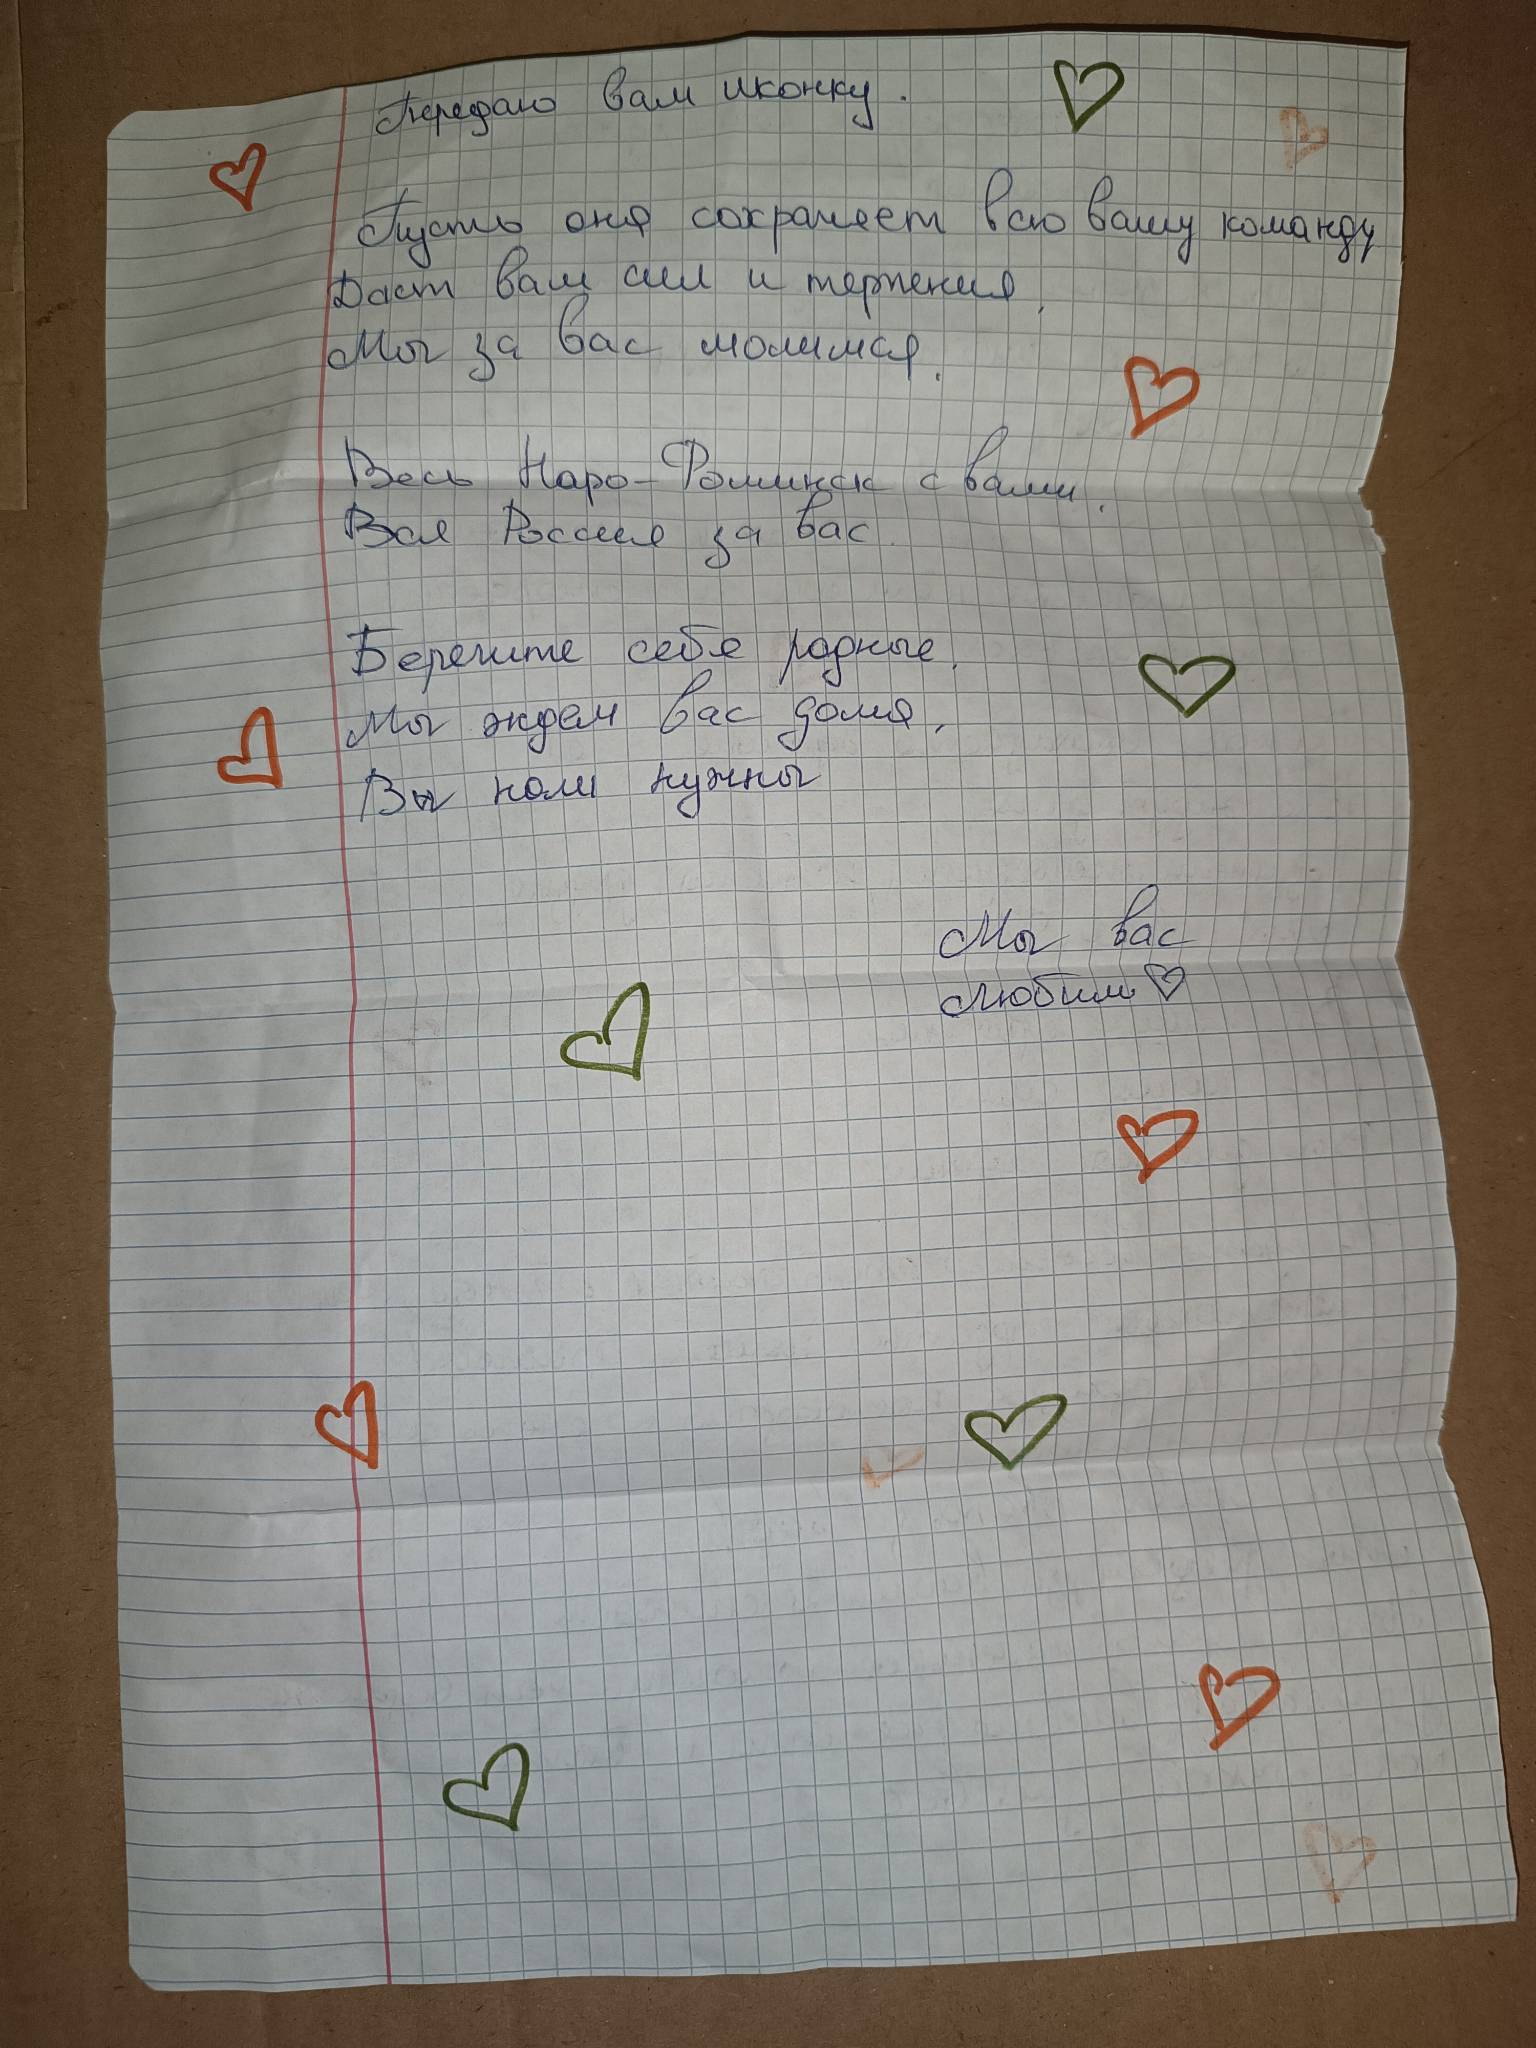 Передаю вам иконку.
Пусть она сохраняет всю вашу команду
Даст вам сил и терпения.
Мы за вас молимся.
Весь Наро-Фоминск с вами.
Вся Россия за вас.
Берегите себя родные.
Мы ждем вас дома.
Вы нам нужны
Мы вас
любим♡